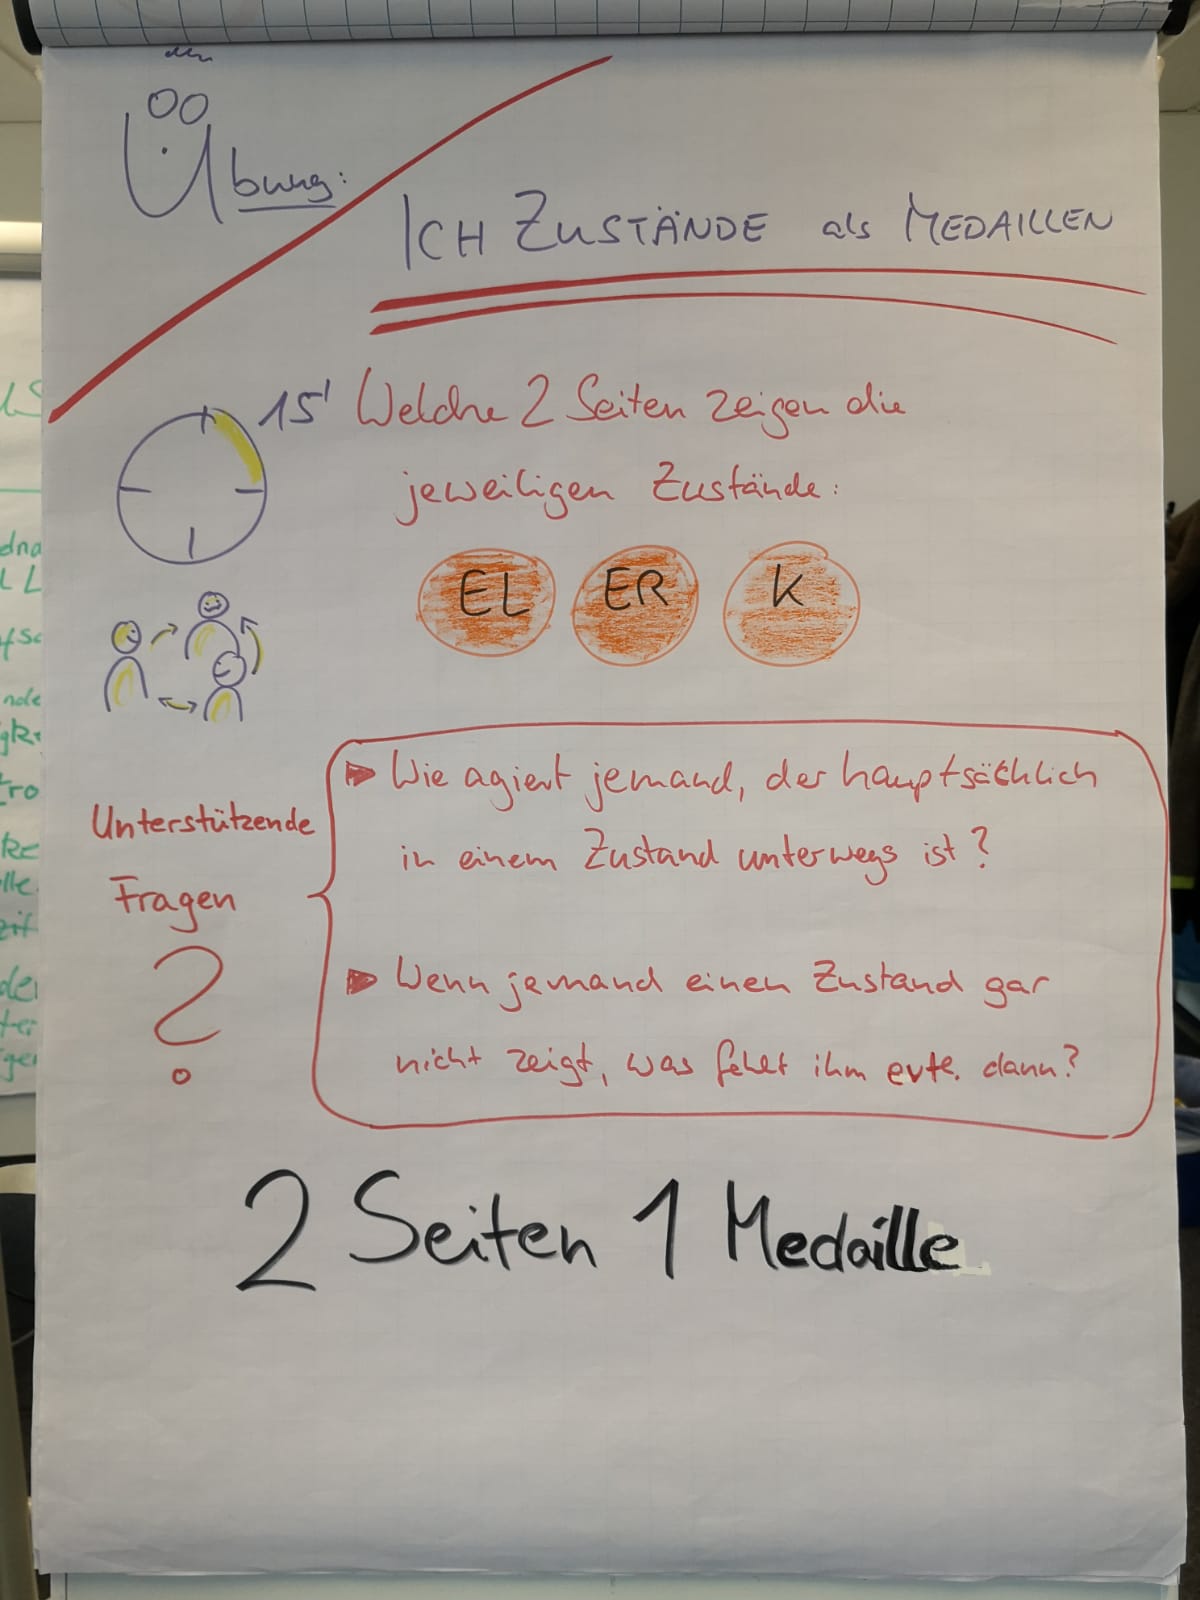 Übung:
ICH ZUSTÄNDE als MEDAILLEN
15'
Welche 2 Seiten zeigen die
jeweiligen Zustände:
EL
ER
K
Unterstützende
Fragen
?
Wie agiert jemand, der hauptsächlich
in einem Zustand unterwegs ist?
Wenn jemand einen Zustand gar
nicht zeigt, was fehlt ihm evtl. dann?
2 Seiten 1 Medaille